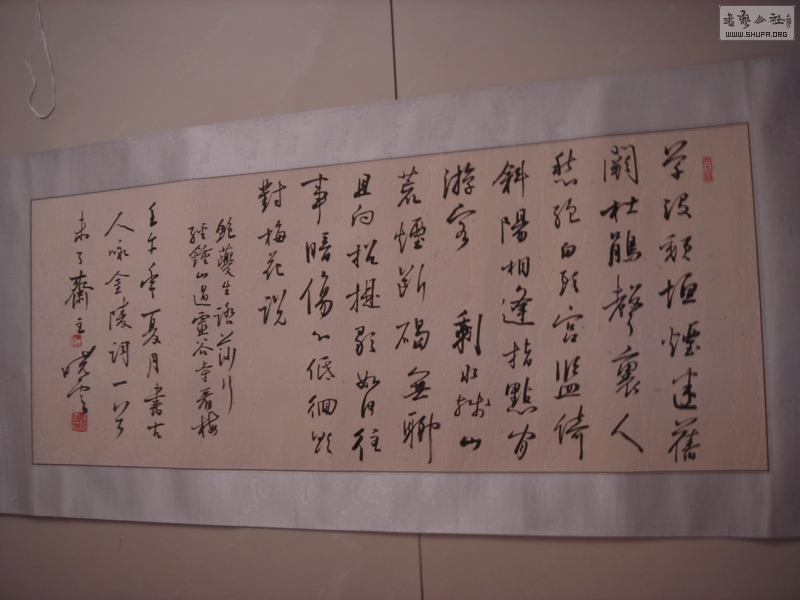 草没頹垣煙迷舊
闕杜鵑聲裏人
愁絕白頭宮監倚
斜陽相逢指點當
游客 剩水殘山
荒煙斷碣無聊
且向招提歇如何往
事暗傷心低徊欲
對梅花說
鮑夔生踏莎行
經鍾山過靈谷寺看梅
壬午年夏月書古
人咏金陵詞一首
未了齋主 曉雲
WWW.SHUFA.ORG